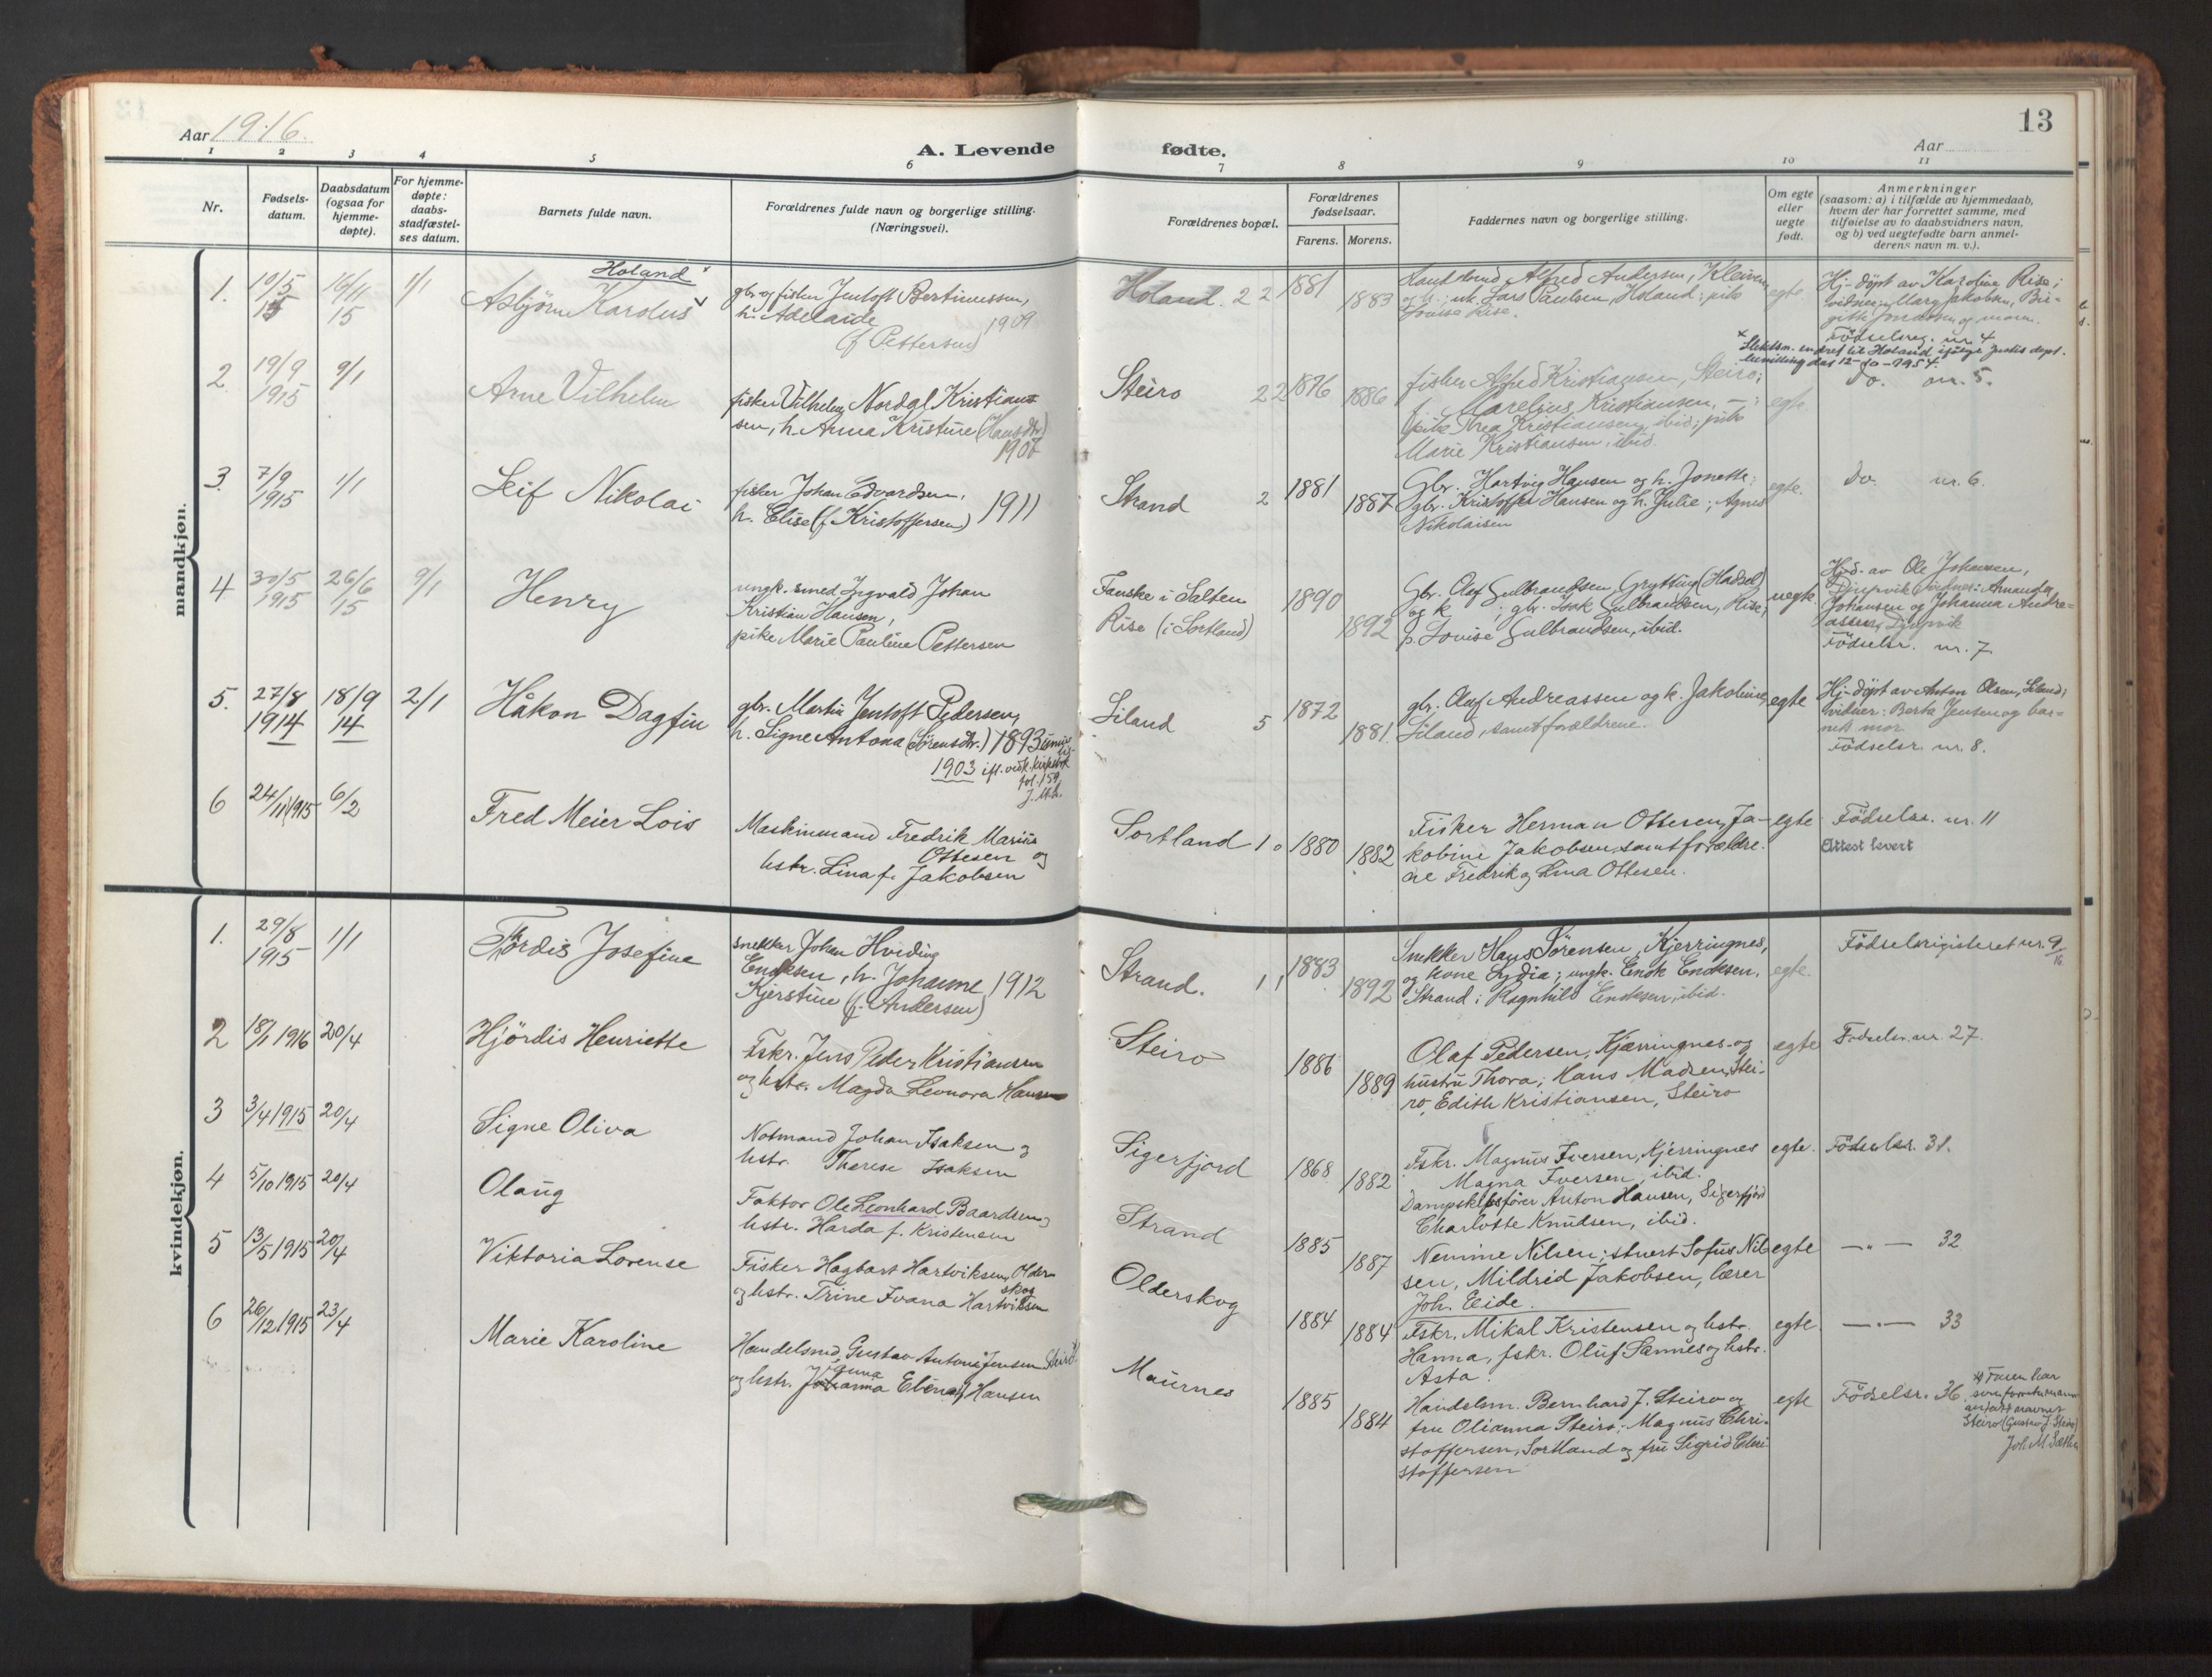 Aar 1916.
A. Levende
fødte.
Aar
13
1 2 3 4 5 6 7 8 9 10 11
Nr.
Fødsels-
datum.
Daabsdatum
(ogsaa for
hjemme-
døpte).
For hjemme-
døpte:
daabs-
stadfæstel-
ses datum.
Barnets fulde navn.
Forældrenes fulde navn og borgerlige stilling.
(Næringsvei).
Forældrenes bopæl.
Forældrenes
fødselsaar.
Farens. Morens.
Faddernes navn og borgerlige stilling.
Om egte
eller
uegte
født.
Anmerkninger
(saasom: a) i tilfælde av hjemmedaab,
hvem der har forrettet samme, med
tilføielse av to daabsvidners navn,
og b) ved uegtefødte barn anmel-
derens navn m. v.).
mandkjøn.
1. 10/5 15 16/11 15 1/1
Holand x
Asbjørn Karolus
gbr. og fisker Jentoft Bertinussen,
h. Adelaide
(f. Pettersen) 1909
Holand. 2 2 1881 1883
samt brud Alfred Andersen, Kleiven
og h.; uk. Lars Paulsen, Holand; pike
Lovise Rise.
egte
Hj-døpt av Karoline Rise;
vidner: Marg. Jakobsen, Bir-
gith Jonassen og moren.
Fødselsreg. nr. 4
x Slektsn. endret til Holand ifølge Justis dept.
bevilling dat 12-10-1954.
2. 19/9 1915 9/1
Arne Vilhelm
fisker Vilhelm Nordal Kristian-
sen, h. Anna Kristine (Hansdtr)
1907
Steiro 2 2 1876 1886
fisker Alfred Kristiansen, Steiro;
f. Marelius Kristiansen, — ;
pike Thea Kristiansen, ibid; pike
Marie Kristiansen, ibid.
egte.
Do. nr. 5.
3. 7/9 1915 1/1
Leif Nikolai
fisker Johan Edvardsen,
h. Elise (f. Kristoffersen) 1911
Strand 2 1881 1887
Gbr. Hartvig Hansen og h. Jonette;
gbr. Kristoffer Hansen og h. Julie; Agnes
Nikolaisen
egte.
Do. nr. 6.
4 30/5 1915 26/6 15 9/1
Henry
ungk. smed Ingvald Johan
Kristian Hansen,
pike Marie Pauline Pettersen
Fauske i Salten
Rise (i Sortland)
1890 1892
Gbr. Olaf Gulbrandsen Grytting (Hadsel)
og k ; gbr. Isak Gulbrandsen, Rise,
p. Lovise Gulbrandsen, ibid.
uegte
Hjd. av Ole Johansen,
Djupvik (vidner: Amanda
Johansen og Johanna Andre-
assen, Djupvik
Fødselsr. nr. 7
5. 27/8 1914 18/9 14 2/1
Håkon Dagfin
gbr. Martin Jentoft Pedersen,
h. Signe Antona (Sørensdtr.) 1893
1903 ifl. vedk. kirkebok
fol. 159
J. M. S.
Liland 5 1872 1881
gbr. Olaf Andreassen og k. Jakobine,
Liland, samt forældrene.
egte
Hj-døpt av Anton Olsen, Liland;
vidner: Berta Jensen og bar-
nets mor
Fødselsr. nr. 8.
6 24/11 1915 6/2
Fred Meier Lois
Maskinmand Fredrik Marius
Ottesen og
hstr. Lina f. Jakobsen
Sortland 1 0 1880 1882
Fisker Herman Ottesen, Ja-
kobine Jakobsen, samt forældre-
ne Fredrik og Lina Ottesen.
egte
Fødselsr. nr. 11
Attest levert
kvindekjøn.
1. 29/8 1915 1/1
Tordis Josefine
snekker Johan Hviding
Enoksen, h. Johanne 1912
Kjerstine (f. Andersen)
Strand. 1 1 1883 1892
Snekker Hans Sørensen, Kjerringnes,
og kone Lydia; ungk. Enok Enoksen,
Strand; Ragnhild Enoksen, ibid.
egte.
Fødselsrigisteret nr. 9/16
2 18/1 1916 20/4
Hjørdis Henriette
Fskr. Jens Peder Kristiansen
og hstr. Magda Leonora Hansen
Steiro 1886 1889
Olaf Pedersen, Kjærringnes og
hustru Thora; Hans Madsen, Stei-
ro, Edith Kristiansen, Steiro
egte
Fødselsr. nr. 27.
3 3/4 1915 20/4
Signe Oliva
Notmand Johan Isaksen og
hstr. Therese Isaksen
Sigerfjord 1868 1882
Fskr. Magnus Iversen, Kjerringnes
Magna Iversen, ibid.
Dampskibsfører Anton Hansen, Sigerfjord
Charlotte Knudsen, ibid.
egte.
Fødselsr. 31.
4 5/10 1915 20/4
Olaug
Faktor Ole Leonhard Baardsen og
hstr. Harda f. Kristensen
Strand 1885 1887
Nemine Nilsen; stuert Sofus Nil-
sen, Mildrid Jakobsen, lærer
Joh. Eide.
egte
—„— 32
5 13/5 1915 20/4
Viktoria Lorense
Fisker Hagbart Hartviksen, Older-
skog
og hstr. Trine Ivana Hartviksen
Olderskog 1884 1884
Fskr. Mikal Kristensen og hstr.
Hanna, fskr. Oluf Sannes og hstr.
Asta.
egte
—„— 33
6 26/12 1915 23/4
Marie Karoline
Handelsmd. Gustav Antoni Jensen Steiro x)
og hstr. Johanna Elena f. Hansen
Maurnes 1885 1884
Handelsm. Bernhard J. Steiro og
fru Olianna Steiro; Magnus Chri-
stoffersen, Sortland og fru Sigrid Chri-
stoffersen
egte
Fødselsr. 36.
x) Faren har
som forretnmann
antatt navnet
Steiro (Gustav J. Steiro)
Joh. M. Sæth